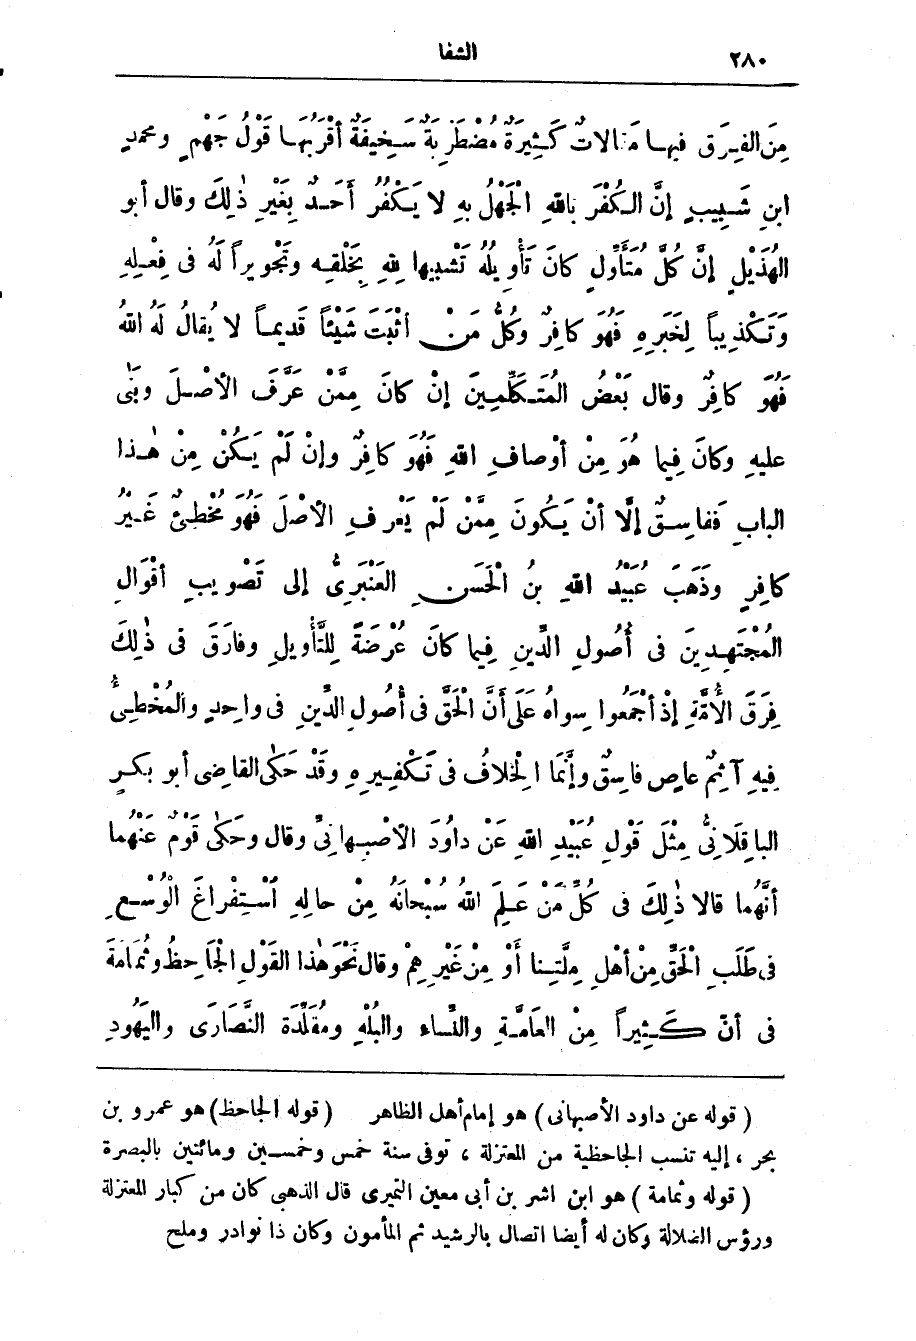 ٢٨٠
الشفا
مِنَ الفِرَقِ فيها مَقالاتٌ كَثِيرَةٌ مُضْطَرِبَةٌ سَخِيفَةٌ أقْرَبُها قَوْلُ جَهْمٍ ومحمدِ
ابنِ شَبِيبٍ إنَّ الكُفْرَ باللهِ الجَهْلُ بِهِ لا يَكْفُرُ أَحَدٌ بِغَيْرِ ذٰلِكَ وقال أبو
الهُذَيْلِ إنَّ كُلَّ مُتَأَوِّلٍ كانَ تَأْوِيلُهُ تَشْبِيها لِلهِ بِخَلْقِهِ وتَجْوِيراً لَهُ فى فِعْلِهِ
وَتَكْذِيباً لِخَبَرِهِ فَهُوَ كافِرٌ وكُلُّ مَنْ أثْبَتَ شَيْئاً قَدِيماً لا يُقالُ لَهُ اللهُ
فَهُوَ كافِرٌ وقال بَعْضُ المُتَكَلِّمِينَ إنْ كانَ مِمَّنْ عَرَفَ الأصْلَ وبَنٰى
عليهِ وكانَ فِيما هُوَ مِنْ أوْصافِ اللهِ فَهُوَ كافِرٌ وإنْ لَمْ يَكُنْ مِنْ هٰذا
البابِ فَفاسِقٌ إلَّا أنْ يَكُونَ مِمَّنْ لَمْ يَعْرِفِ الأصْلَ فَهُوَ مُخْطِئٌ غَيْرُ
كافِرٍ وذَهَبَ عُبَيْدُ اللهِ بنُ الْحَسَنِ العَنْبَرِىُّ إلى تَصْوِيبِ أقْوَالِ
المُجْتَهِدِينَ فى أُصُولِ الدِّينِ فِيما كانَ عُرْضَةً لِلتَّأْوِيلِ وفارَقَ فى ذٰلِكَ
فِرَقَ الأُمَّةِ إذْ أجْمَعُوا سِواهُ عَلَى أنَّ الحَقَّ فى أُصُولِ الدِّينِ فى واحِدٍ والمُخْطِئُ
فِيهِ آثِمٌ عاصٍ فاسِقٌ وإنَّمَا الخِلافُ فى تَكْفِيرِهِ وقَدْ حَكَى القاضِى أبو بكرٍ
الباقِلَانِىُّ مِثْلَ قَوْلِ عُبَيْدِ اللهِ عَنْ داوُدَ الأصْبِهانِىِّ وقال وحَكٰى قَوْمٌ عَنْهُما
أنَّهُما قالا ذٰلِكَ فى كُلِّ مَنْ عَلِمَ اللهُ سُبْحانَهُ مِنْ حالِهِ اسْتِفْراغَ الْوُسْعِ
فى طَلَبِ الْحَقِّ مِنْ أهْلِ مِلَّتِنا أَوْ مِنْ غَيْرِهِمْ وقال نَحْوَ هٰذا القَوْلِ الْجَاحِظُ وثُمامَةُ
فى أنَّ كَثِيراً مِنْ العَامَّةِ والنِّساءِ والبُلْهِ ومُقَلِّدَةِ النَّصَارَى واليَهُودِ
( قوله عن داود الأصبهانى ) هو إمام أهل الظاهر ( قوله الجاحظ ) هو عمرو بن
بحر ، إليه تنسب الجاحظية من المعتزلة ، توفى سنة خمس وخمسين ومائتين بالبصرة
( قوله وثمامة ) هو ابن اشر بن أبى معين النميرى قال الذهبى كان من كبار المعتزلة
ورؤس الضلالة وكان له أيضا اتصال بالرشيد ثم المأمون وكان ذا نوادر وملح